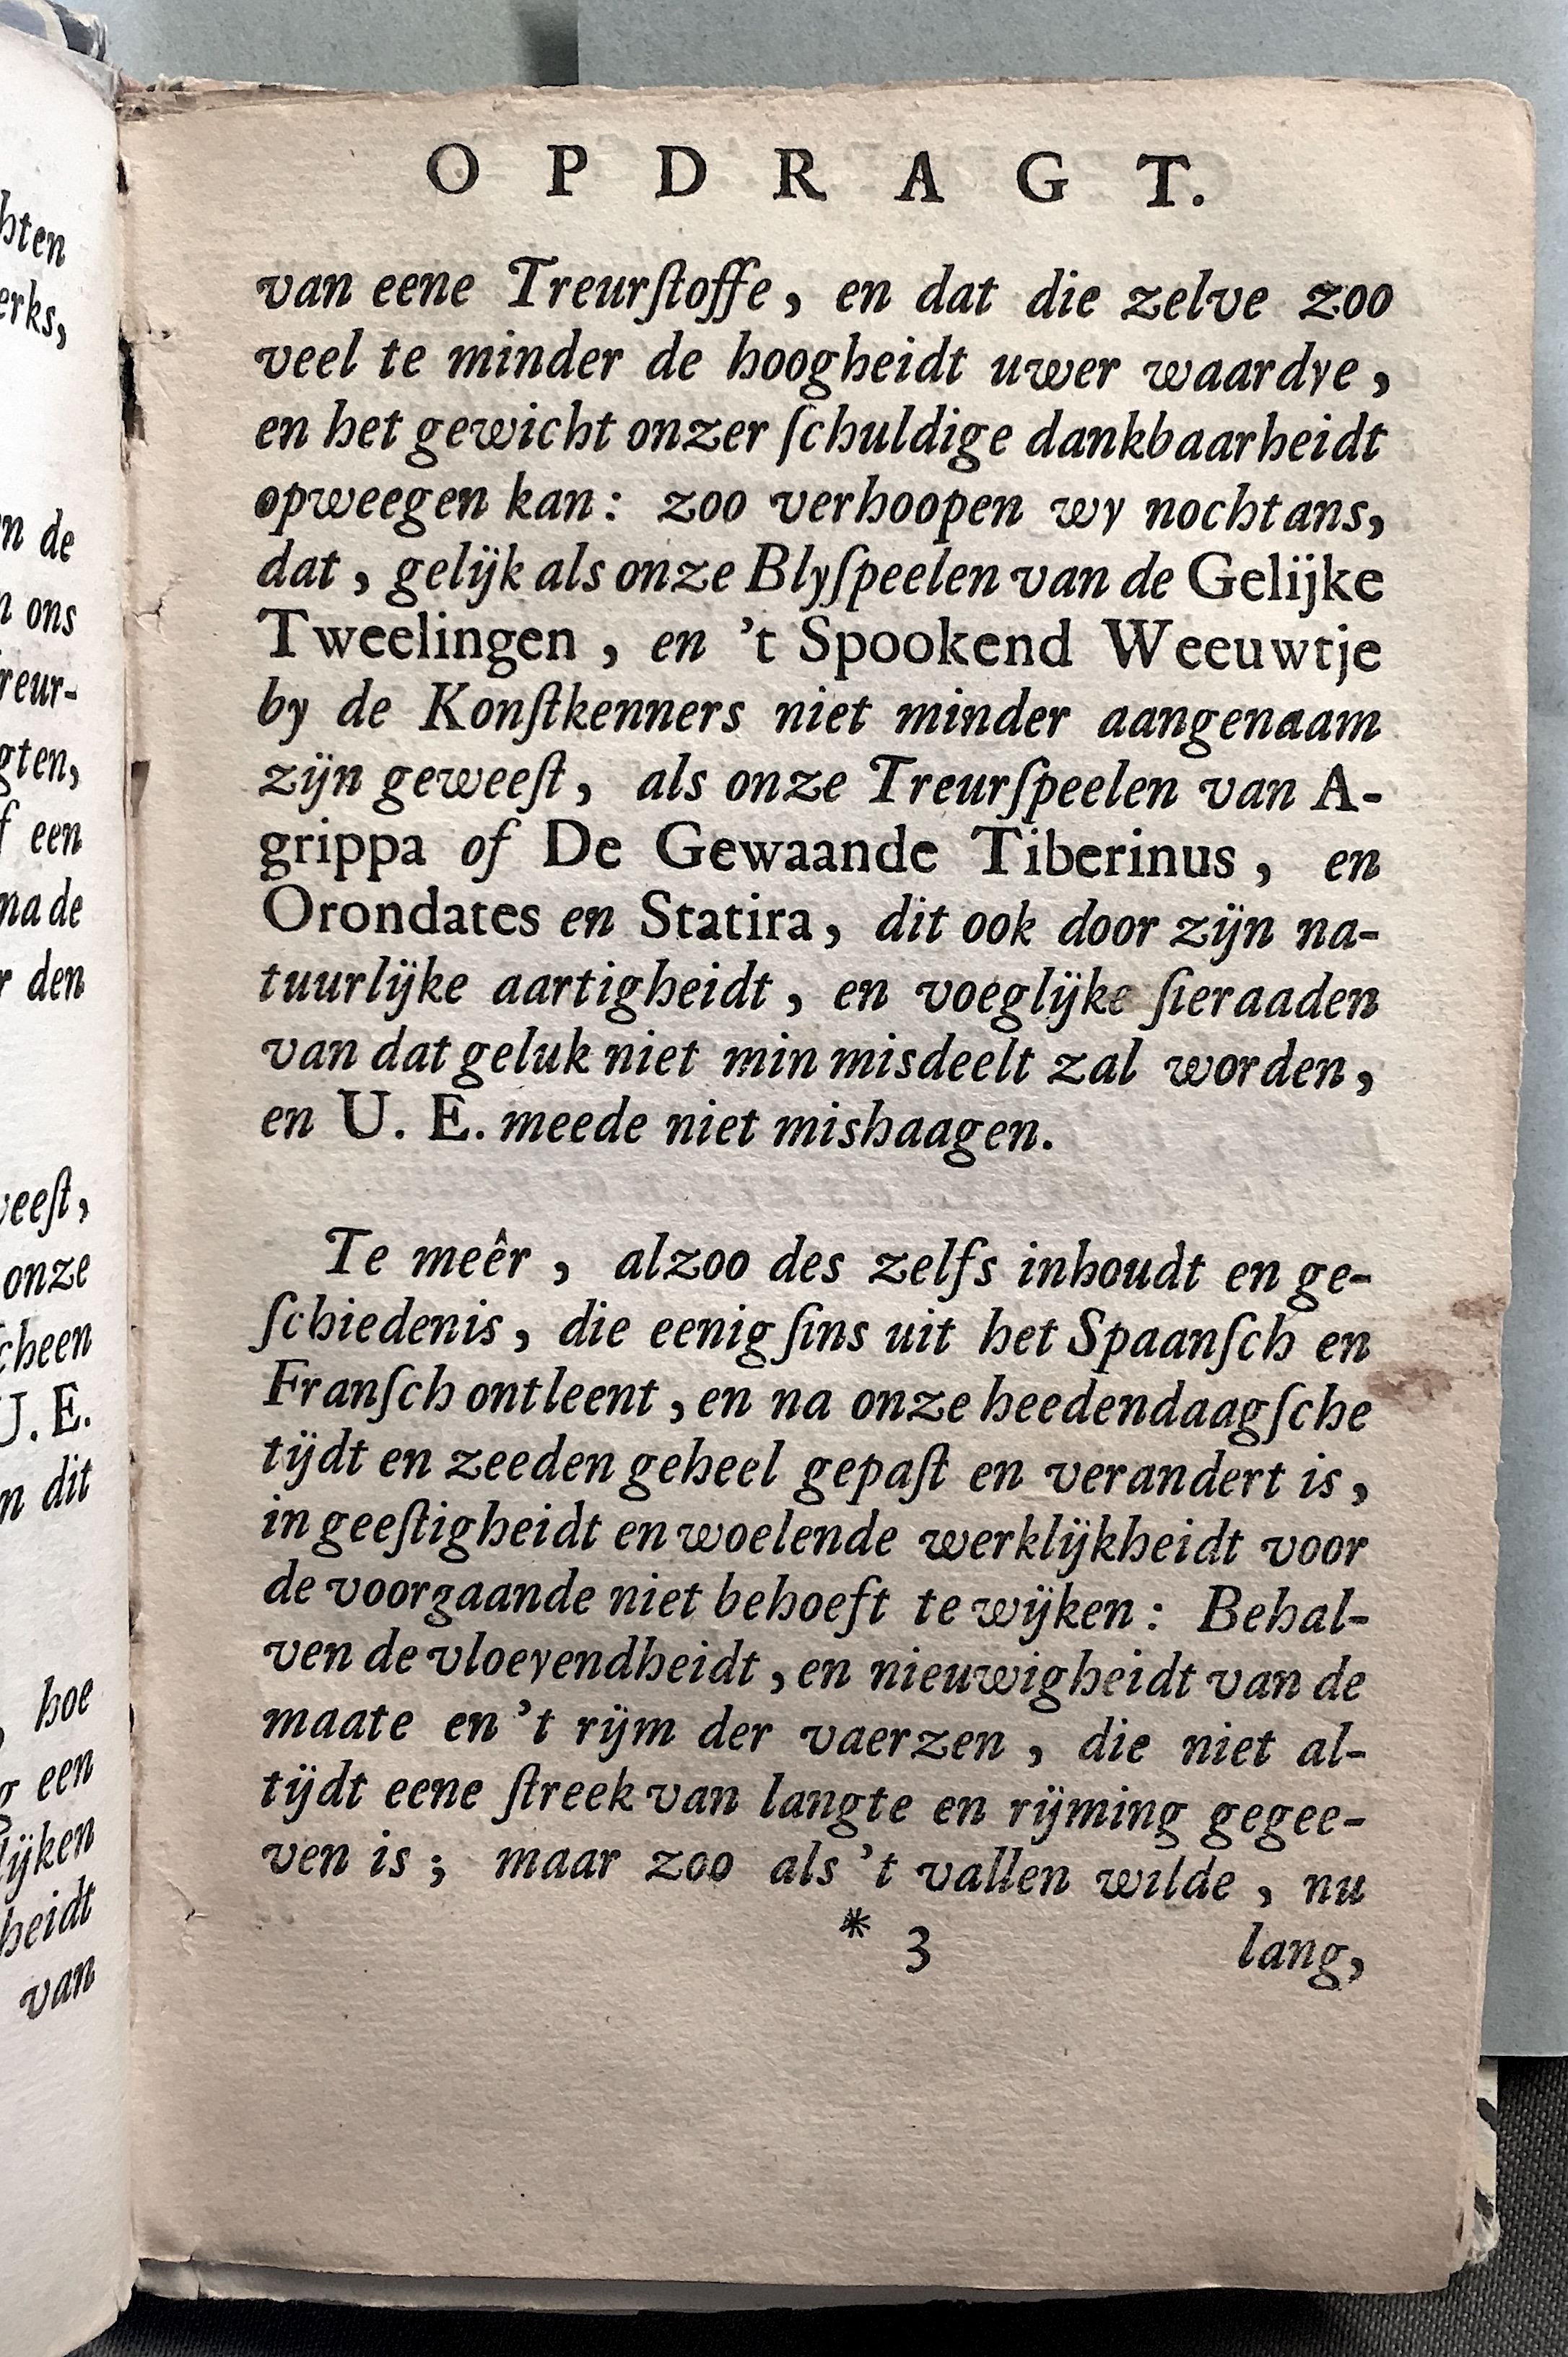 O P D R A G T.
van eene Treurſtoffe, en dat die zelve zoo
veel te minder de hoogheidt uwer waardye,
en het gewicht onzer ſchuldige dankbaarheidt
opweegen kan: zoo verhoopen wy nochtans,
dat, gelijk als onze Blyſpeelen van de Gelijke
Tweelingen, en 't Spookend Weeuwtje
by de Konſtkenners niet minder aangenaam
zijn geweeſt, als onze Treurſpeelen van A-
grippa of De Gewaande Tiberinus, en
Orondates en Statira, dit ook door zijn na-
tuurlijke aartigheidt, en voeglijke ſieraaden
van dat geluk niet min misdeelt zal worden,
en U. E. meede niet mishaagen.
Te meêr, alzoo des zelfs inhoudt en ge-
ſchiedenis, die eenigſins uit het Spaanſch en
Franſch ontleent, en na onze heedendaagſche
tijdt en zeeden geheel gepaſt en verandert is,
in geeſtigheidt en woelende werklijkheidt voor
de voorgaande niet behoeft te wijken: Behal-
ven de vloeyendheidt, en nieuwigheidt van de
maate en 't rijm der vaerzen, die niet al-
tijdt eene ſtreek van langte en rijming gegee-
ven is; maar zoo als 't vallen wilde, nu
* 3 lang,